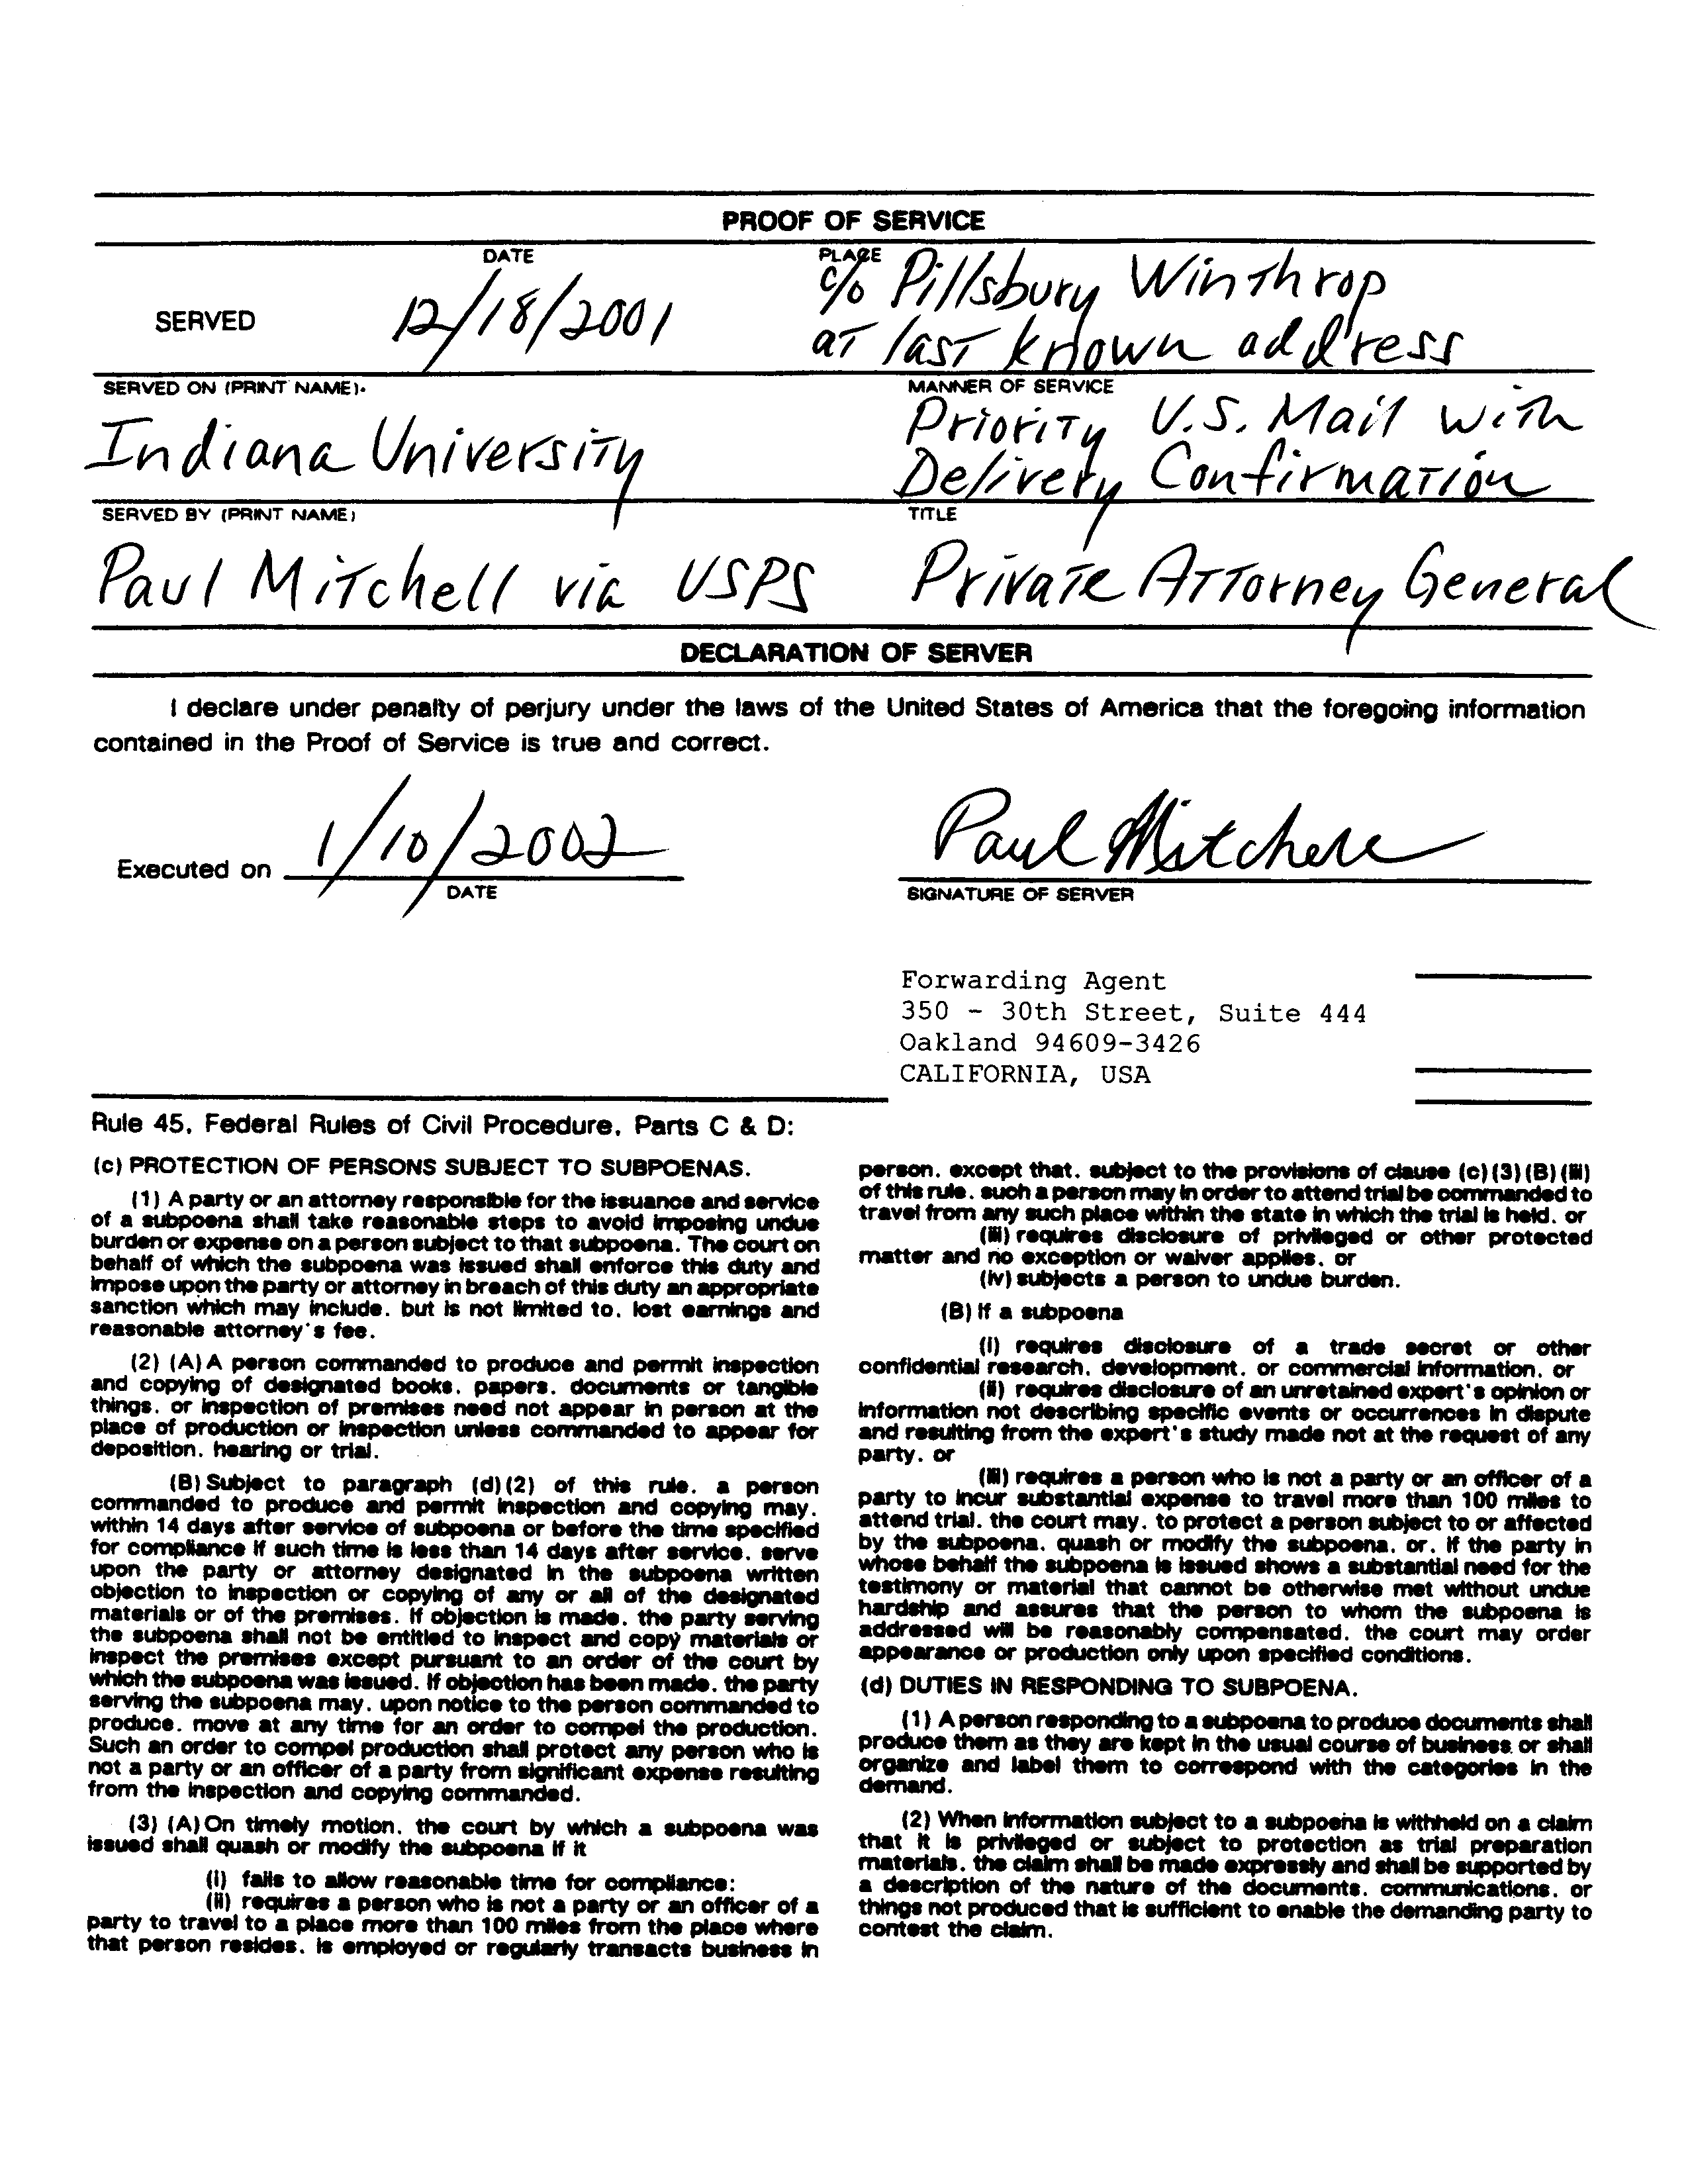 PROOF OF SERVICE
DATE
PLACE
SERVED
12/18/2001
c/o Pillsbury Winthrop
at last known address
SERVED ON (PRINT NAME).
MANNER OF SERVICE
Indiana University
Priority U.S. Mail with
Delivery Confirmation
SERVED BY (PRINT NAME)
TITLE
Paul Mitchell via USPS
Private Attorney General
DECLARATION OF SERVER
I declare under penalty of perjury under the laws of the United States of America that the foregoing information
contained in the Proof of Service is true and correct.
Executed on 1/10/2002
DATE
Paul Mitchell
SIGNATURE OF SERVER
Forwarding Agent
350 - 30th Street, Suite 444
Oakland 94609-3426
CALIFORNIA, USA
Rule 45, Federal Rules of Civil Procedure, Parts C & D:
(c) PROTECTION OF PERSONS SUBJECT TO SUBPOENAS.
(1) A party or an attorney responsible for the issuance and service
of a subpoena shall take reasonable steps to avoid imposing undue
burden or expense on a person subject to that subpoena. The court on
behalf of which the subpoena was issued shall enforce this duty and
impose upon the party or attorney in breach of this duty an appropriate
sanction which may include, but is not limited to, lost earnings and
reasonable attorney's fee.
(2) (A) A person commanded to produce and permit inspection
and copying of designated books, papers, documents or tangible
things, or inspection of premises need not appear in person at the
place of production or inspection unless commanded to appear for
deposition, hearing or trial.
(B) Subject to paragraph (d)(2) of this rule, a person
commanded to produce and permit inspection and copying may,
within 14 days after service of subpoena or before the time specified
for compliance if such time is less than 14 days after service, serve
upon the party or attorney designated in the subpoena written
objection to inspection or copying of any or all of the designated
materials or of the premises. If objection is made, the party serving
the subpoena shall not be entitled to inspect and copy materials or
inspect the premises except pursuant to an order of the court by
which the subpoena was issued. If objection has been made, the party
serving the subpoena may, upon notice to the person commanded to
produce, move at any time for an order to compel the production.
Such an order to compel production shall protect any person who is
not a party or an officer of a party from significant expense resulting
from the inspection and copying commanded.
(3) (A) On timely motion, the court by which a subpoena was
issued shall quash or modify the subpoena if it
(i) fails to allow reasonable time for compliance;
(ii) requires a person who is not a party or an officer of a
party to travel to a place more than 100 miles from the place where
that person resides, is employed or regularly transacts business in
person, except that, subject to the provisions of clause (c)(3)(B)(iii)
of this rule, such a person may in order to attend trial be commanded to
travel from any such place within the state in which the trial is held, or
(iii) requires disclosure of privileged or other protected
matter and no exception or waiver applies, or
(iv) subjects a person to undue burden.
(B) If a subpoena
(i) requires disclosure of a trade secret or other
confidential research, development, or commercial information, or
(ii) requires disclosure of an unretained expert's opinion or
information not describing specific events or occurrences in dispute
and resulting from the expert's study made not at the request of any
party, or
(iii) requires a person who is not a party or an officer of a
party to incur substantial expense to travel more than 100 miles to
attend trial, the court may, to protect a person subject to or affected
by the subpoena, quash or modify the subpoena, or, if the party in
whose behalf the subpoena is issued shows a substantial need for the
testimony or material that cannot be otherwise met without undue
hardship and assures that the person to whom the subpoena is
addressed will be reasonably compensated, the court may order
appearance or production only upon specified conditions.
(d) DUTIES IN RESPONDING TO SUBPOENA.
(1) A person responding to a subpoena to produce documents shall
produce them as they are kept in the usual course of business or shall
organize and label them to correspond with the categories in the
demand.
(2) When information subject to a subpoena is withheld on a claim
that it is privileged or subject to protection as trial preparation
materials, the claim shall be made expressly and shall be supported by
a description of the nature of the documents, communications, or
things not produced that is sufficient to enable the demanding party to
contest the claim.